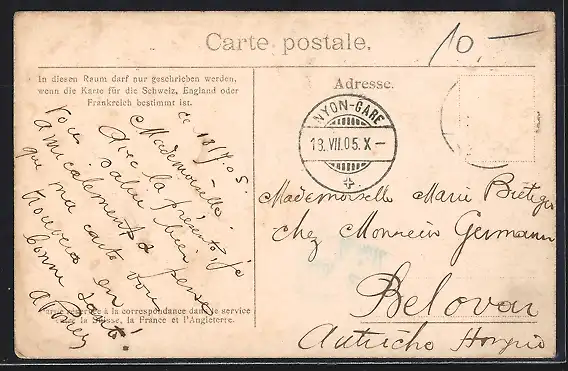 Carte postale.
10.-
In diesen Raum darf nur geschrieben werden,
wenn die Karte für die Schweiz, England oder
Frankreich bestimmt ist.
Adresse.
NYON-GARE
18.VII.05.X-
ce 18/7.05.
Mademoiselle
Avec la présente, je
salue bien
Vous
amicalement & pense
que ma carte vous
trouvera en
bonne santé.
réservée à la correspondance dans le service
la Suisse, la France et l'Angleterre.
Mademoiselle Marie
chez Monsieur Germann
Belovar
Autriche